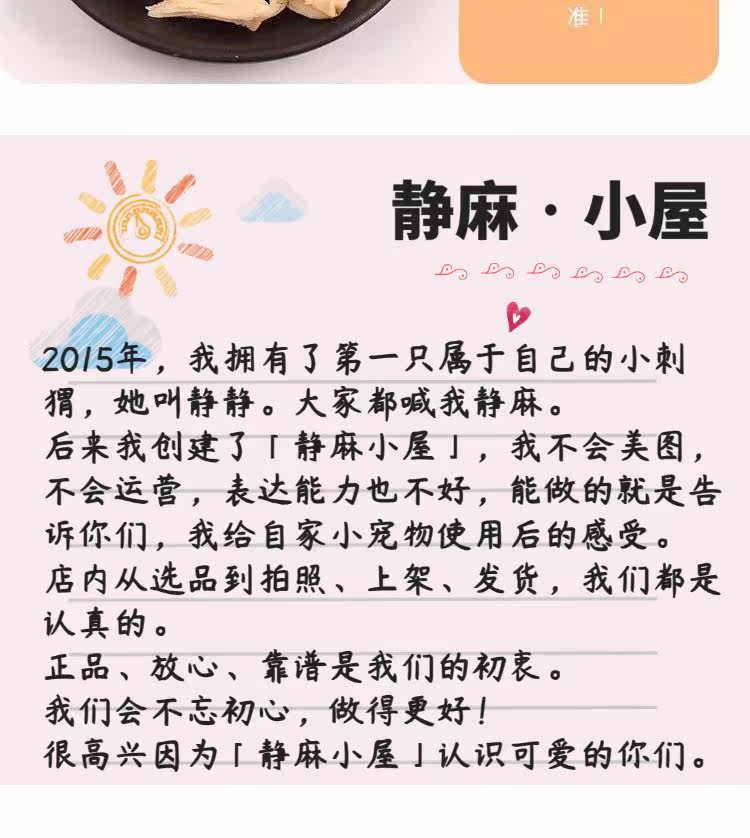 准！
静麻·小屋
2015年，我拥有了第一只属于自己的小刺
猬，她叫静静。大家都喊我静麻。
后来我创建了「静麻小屋」，我不会美图，
不会运营，表达能力也不好，能做的就是告
诉你们，我给自家小宠物使用后的感受。
店内从选品到拍照、上架、发货，我们都是
认真的。
正品、放心、靠谱是我们的初衷。
我们会不忘初心，做得更好！
很高兴因为「静麻小屋」认识可爱的你们。